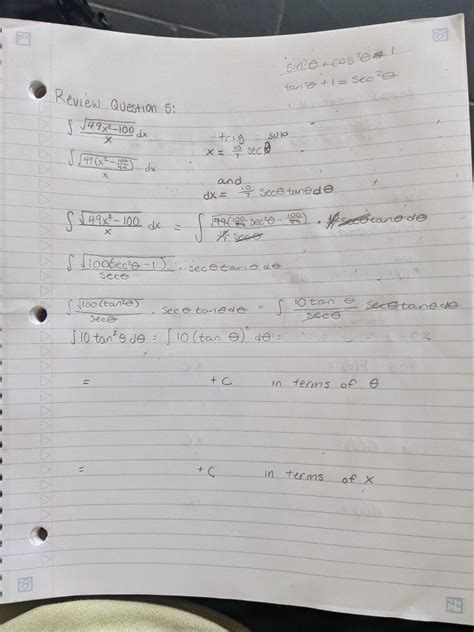 sin²θ + cos²θ = 1
tan²θ + 1 = sec²θ
Review Question 5:
∫ √(49x²-100)/x dx
trig sub
x = 10/7 sec θ
∫ √(49(x² - 100/49))/x dx
and
dx = 10/7 secθ tanθ dθ
∫ √(49x²-100)/x dx = ∫ √(49(100/49 sec²θ - 100/49))/(10/7 secθ) · 10/7 secθ tanθ dθ
∫ √(100(sec²θ - 1))/secθ · secθ tanθ dθ
∫ √(100(tan²θ))/secθ · secθ tanθ dθ = ∫ 10 tan θ/secθ secθ tanθ dθ
∫ 10 tan²θ dθ = ∫ 10 (tan θ)² dθ =
= +C in terms of θ
= +C in terms of x